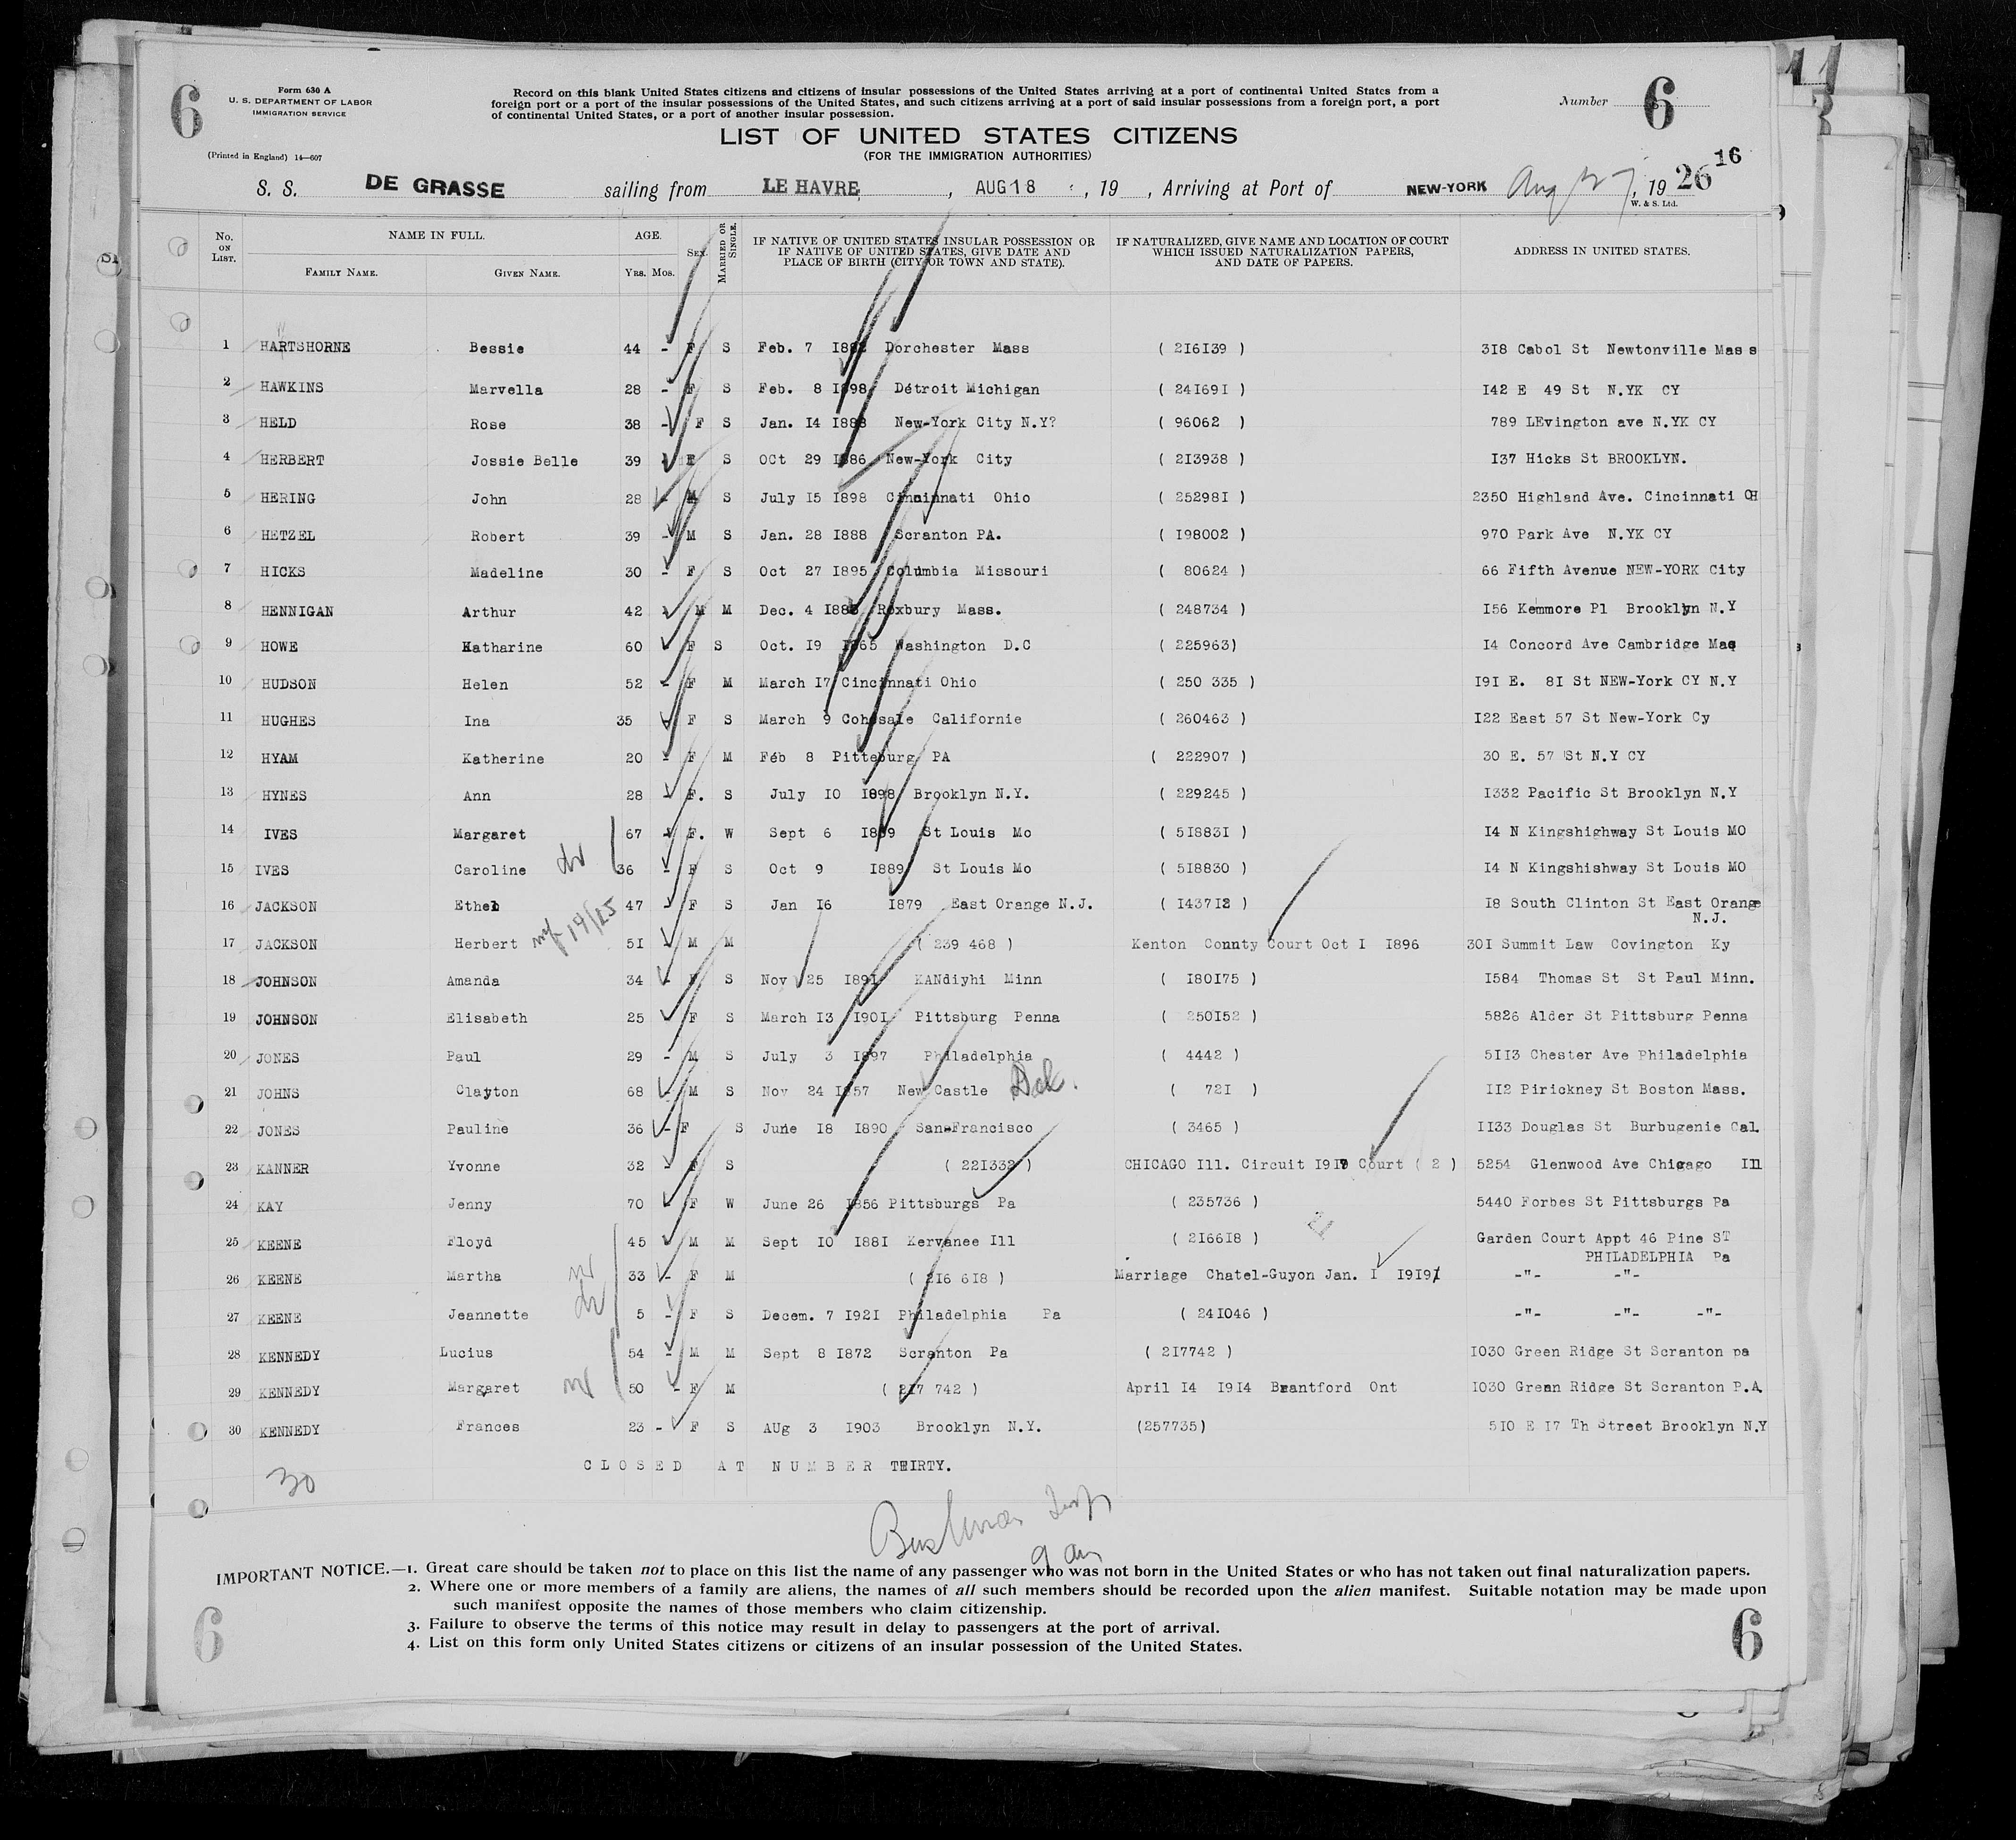 6
Form 630 A
U. S. DEPARTMENT OF LABOR
IMMIGRATION SERVICE
(Printed in England) 14—607
Record on this blank United States citizens and citizens of insular possessions of the United States arriving at a port of continental United States from a
foreign port or a port of the insular possessions of the United States, and such citizens arriving at a port of said insular possessions from a foreign port, a port
of continental United States, or a port of another insular possession.
Number 6
LIST OF UNITED STATES CITIZENS
(FOR THE IMMIGRATION AUTHORITIES)
16
S. S. DE GRASSE sailing from LE HAVRE, AUG 18, 19 , Arriving at Port of NEW-YORK Aug 27, 1926
W. & S. Ltd.
No. ON LIST. NAME IN FULL. FAMILY NAME. GIVEN NAME. AGE. YRS. MOS. SEX. MARRIED OR SINGLE. IF NATIVE OF UNITED STATES INSULAR POSSESSION OR IF NATIVE OF UNITED STATES, GIVE DATE AND PLACE OF BIRTH (CITY OR TOWN AND STATE). IF NATURALIZED, GIVE NAME AND LOCATION OF COURT WHICH ISSUED NATURALIZATION PAPERS, AND DATE OF PAPERS. ADDRESS IN UNITED STATES.
1 HARTSHORNE Bessie 44 - F S Feb. 7 1882 Dorchester Mass ( 216139 ) 318 Cabol St Newtonville Mass
2 HAWKINS Marvella 28 - F S Feb. 8 1898 Détroit Michigan ( 241691 ) 142 E 49 St N.YK CY
3 HELD Rose 38 - F S Jan. 14 1888 New-York City N.Y? ( 96062 ) 789 LEvington ave N.YK CY
4 HERBERT Jossie Belle 39 F S OCt 29 1886 New-York City ( 213938 ) 137 Hicks St BROOKLYN.
5 HERING John 28 - M S July 15 1898 Cincinnati Ohio ( 252981 ) 2350 Highland Ave. Cincinnati OH
6 HETZEL Robert 39 - M S Jan. 28 1888 Scranton PA. ( 198002 ) 970 Park Ave N.YK CY
7 HICKS Madeline 30 - F S Oct 27 1895 Columbia Missouri ( 80624 ) 66 Fifth Avenue NEW-YORK City
8 HENNIGAN Arthur 42 M M Dec. 4 1883 Roxbury Mass. ( 248734 ) 156 Kemmore Pl Brooklyn N.Y
9 HOWE Katharine 60 F S Oct. 19 1865 Washington D.C ( 225963) 14 Concord Ave Cambridge Mas
10 HUDSON Helen 52 - F M March 17 Cincinnati Ohio ( 250 335 ) 191 E. 81 St NEW-York CY N.Y
11 HUGHES Ina 35 F S March 9 Cohasale Californie ( 260463 ) 122 East 57 St New-York Cy
12 HYAM Katherine 20 - F M Féb 8 Pitteburg PA ( 222907 ) 30 E. 57 St N.Y CY
13 HYNES Ann 28 F. S July 10 1898 Brooklyn N.Y. ( 229245 ) 1332 Pacific St Brooklyn N.Y
14 IVES Margaret 67 F. W Sept 6 1859 St Louis Mo ( 518831 ) 14 N Kingshighway St Louis MO
15 IVES Caroline 36 - F S Oct 9 1889 St Louis Mo ( 518830 ) 14 N Kingshishway St Louis MO
16 JACKSON Ethel 47 F S Jan 16 1879 East Orange N.J. ( 143712 ) 18 South Clinton St East Orange
N.J.
17 JACKSON Herbert 51 M M ( 239 468 ) Kenton County Court Oct 1 1896 301 Summit Law Covington Ky
18 JOHNSON Amanda 34 - F S Nov 25 1891 KANdiyhi Minn ( 180175 ) 1584 Thomas St St Paul Minn.
19 JOHNSON Elisabeth 25 F S March 13 1901 Pittsburg Penna ( 250152 ) 5826 Alder St Pittsburg Penna
20 JONES Paul 29 - M S July 3 1897 Philadelphia ( 4442 ) 5113 Chester Ave Philadelphia
21 JOHNS Clayton 68 - M S Nov 24 1857 New Castle Del. ( 721 ) 112 Pirickney St Boston Mass.
22 JONES Pauline 36 - F S June 18 1890 San-Francisco ( 3465 ) 1133 Douglas St Burbugenie Cal.
23 KANNER Yvonne 32 - F S ( 221332 ) CHICAGO Ill. Circuit 1917 Court ( 2 ) 5254 Glenwood Ave Chicago Ill
24 KAY Jenny 70 F W June 26 1856 Pittsburgs Pa ( 235736 ) 5440 Forbes St Pittsburgs Pa
25 KEENE Floyd 45 M M Sept 10 1881 Kervanee Ill ( 216618 ) Garden Court Appt 46 Pine ST
PHILADELPHIA Pa
26 KEENE Martha 33 - F M ( 216 618 ) Marriage Chatel-Guyon Jan. 1 1919 -"- -"-
27 KEENE Jeannette 5 - F S Decem. 7 1921 Philadelphia Pa ( 241046 ) -"- -"- -"-
28 KENNEDY Lucius 54 - M M Sept 8 1872 Scranton Pa ( 217742 ) 1030 Green Ridge St Scranton pa
29 KENNEDY Margaret 50 - F M ( 217 742 ) April 14 1914 Brantford Ont 1030 Green Ridge St Scranton P.A.
30 KENNEDY Frances 23 - F S AUg 3 1903 Brooklyn N.Y. (257735) 510 E 17 Th Street Brooklyn N.Y
CLOSED AT NUMBER THIRTY.
30
IMPORTANT NOTICE.—1. Great care should be taken not to place on this list the name of any passenger who was not born in the United States or who has not taken out final naturalization papers.
2. Where one or more members of a family are aliens, the names of all such members should be recorded upon the alien manifest. Suitable notation may be made upon
such manifest opposite the names of those members who claim citizenship.
3. Failure to observe the terms of this notice may result in delay to passengers at the port of arrival.
4. List on this form only United States citizens or citizens of an insular possession of the United States.
6
6